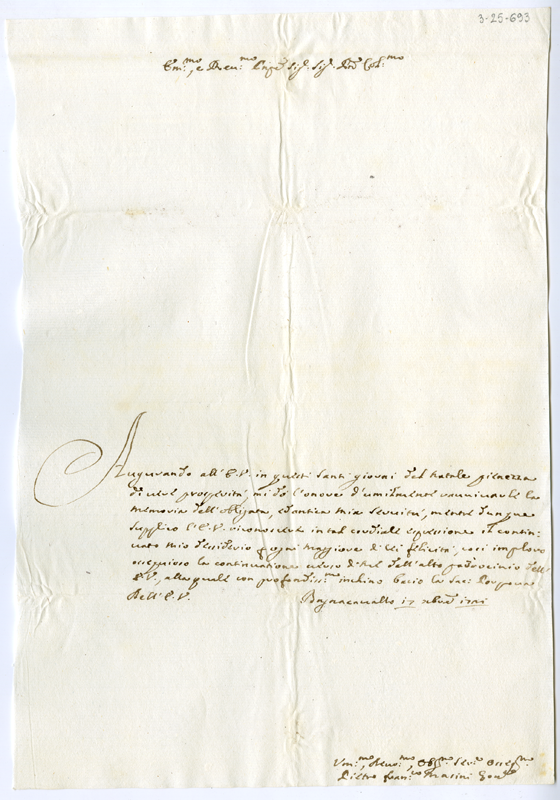 3-25-693
Em.mo, e Reu.mo Prnpe Sig. Sig. Prōn Col.mo
Augurando all'E.V. in questi Santi giorni del Natale pienezza
di vere prosperità, mi dò l'onore d'umilmente
memoria dell'obligata, ed antica mia servitù, mentre dunque
supplico l'E.V. in tal cordiale espressione il contin:
uato mio desiderio p ogni maggiore di Lei felicità, così imploro
ossequioso la continuazione verso di me dell'alto padrocinio dell'
E.V., alla quale con profondiss.mo inchino bacio la Sac. Porpora
Dell'E.V. Bagnacavallo 17 Xbre
Um.mo, Deuo.mo, Obb.mo Serv.e Osseq.mo
Pietro Fran.co Masini